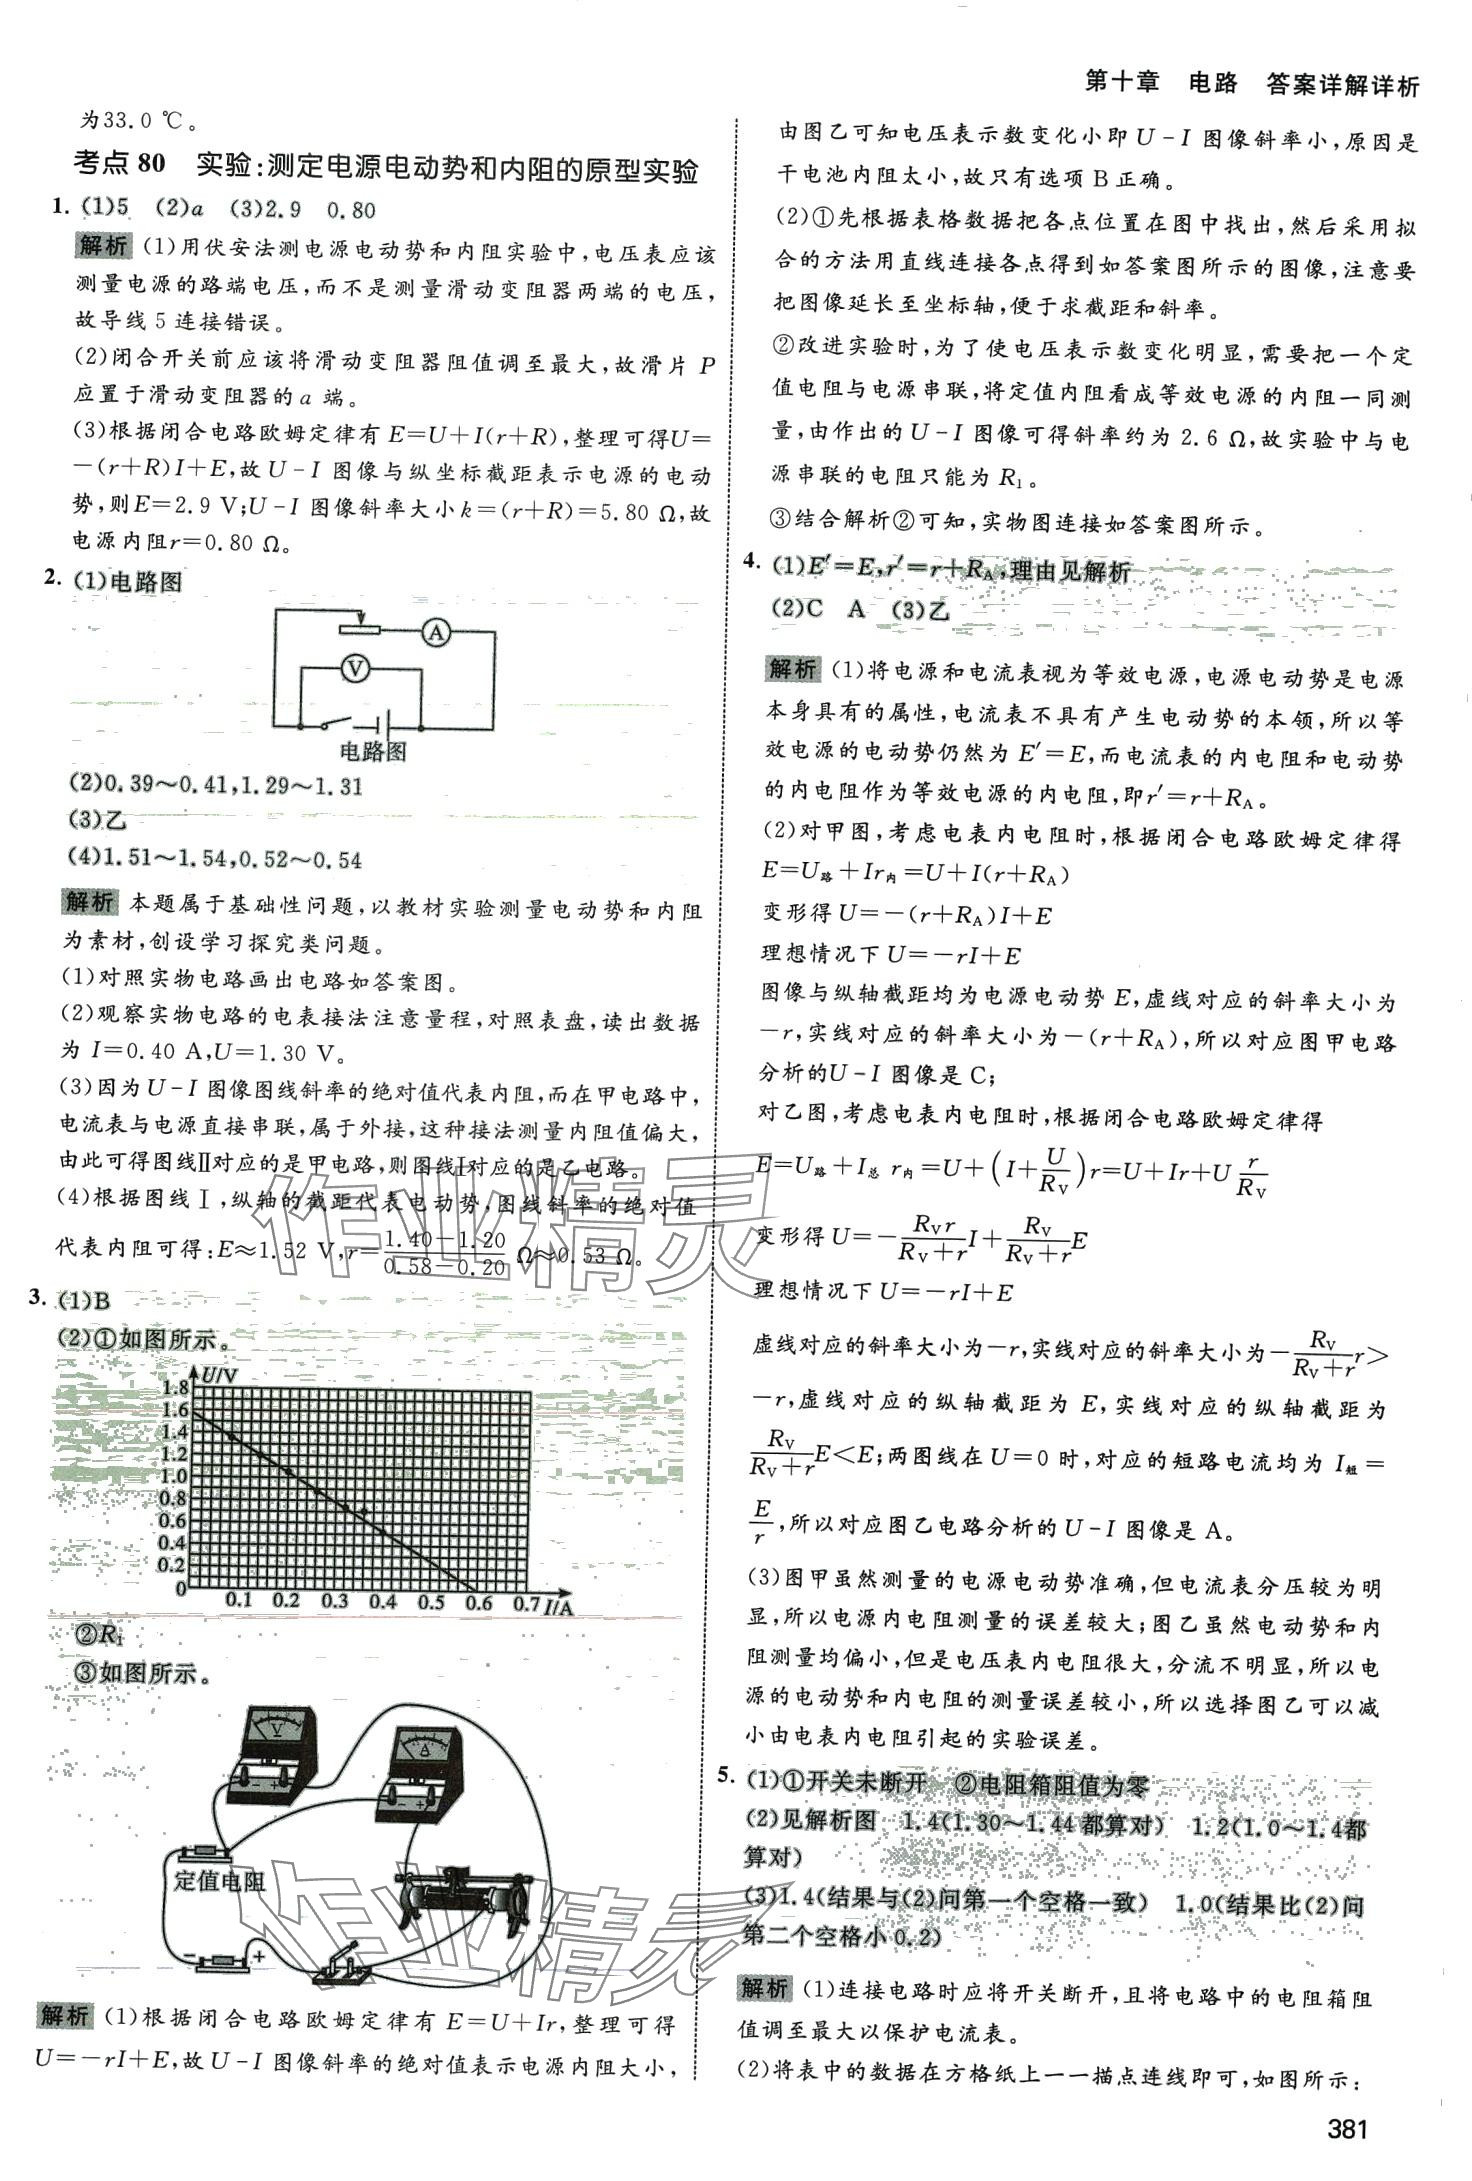 第十章 电路 答案详解详析
为33.0 ℃。
考点 80 实验:测定电源电动势和内阻的原型实验
1. (1)5 (2)a (3)2.9 0.80
解析 (1)用伏安法测电源电动势和内阻实验中,电压表应该
测量电源的路端电压,而不是测量滑动变阻器两端的电压,
故导线 5 连接错误。
(2)闭合开关前应该将滑动变阻器阻值调至最大,故滑片 P
应置于滑动变阻器的 a 端。
(3)根据闭合电路欧姆定律有 E=U+I(r+R),整理可得U=
-(r+R)I+E,故 U-I 图像与纵坐标截距表示电源的电动
势,则E=2.9 V;U-I 图像斜率大小k=(r+R)=5.80 Ω,故
电源内阻r=0.80 Ω。
2. (1)电路图
A
V
电路图
(2)0.39~0.41,1.29~1.31
(3)乙
(4)1.51~1.54,0.52~0.54
解析 本题属于基础性问题,以教材实验测量电动势和内阻
为素材,创设学习探究类问题。
(1)对照实物电路画出电路如答案图。
(2)观察实物电路的电表接法注意量程,对照表盘,读出数据
为 I=0.40 A,U=1.30 V。
(3)因为U-I 图像图线斜率的绝对值代表内阻,而在甲电路中,
电流表与电源直接串联,属于外接,这种接法测量内阻值偏大,
由此可得图线Ⅱ对应的是甲电路,则图线Ⅰ对应的是乙电路。
(4)根据图线Ⅰ,纵轴的截距代表电动势,图线斜率的绝对值
代表内阻可得:E≈1.52 V,r=(1.40-1.20)/(0.58-0.20) Ω≈0.53 Ω。
3. (1)B
(2)①如图所示。
U/V
1.8
1.6
1.4
1.2
1.0
0.8
0.6
0.4
0.2
0
0.1 0.2 0.3 0.4 0.5 0.6 0.7 I/A
②R₁
③如图所示。
V
A
- +
- +
定值电阻
- +
解析 (1)根据闭合电路欧姆定律有 E=U+Ir,整理可得
U=-rI+E,故 U-I 图像斜率的绝对值表示电源内阻大小,
由图乙可知电压表示数变化小即 U-I 图像斜率小,原因是
干电池内阻太小,故只有选项 B 正确。
(2)①先根据表格数据把各点位置在图中找出,然后采用拟
合的方法用直线连接各点得到如答案图所示的图像,注意要
把图像延长至坐标轴,便于求截距和斜率。
②改进实验时,为了使电压表示数变化明显,需要把一个定
值电阻与电源串联,将定值内阻看成等效电源的内阻一同测
量,由作出的 U-I 图像可得斜率约为 2.6 Ω,故实验中与电
源串联的电阻只能为 R₁。
③结合解析②可知,实物图连接如答案图所示。
4. (1)E′=E,r′=r+R_A,理由见解析
(2)C A (3)乙
解析 (1)将电源和电流表视为等效电源,电源电动势是电源
本身具有的属性,电流表不具有产生电动势的本领,所以等
效电源的电动势仍然为 E′=E,而电流表的内电阻和电动势
的内电阻作为等效电源的内电阻,即r′=r+R_A。
(2)对甲图,考虑电表内电阻时,根据闭合电路欧姆定律得
E=U路+Ir内=U+I(r+R_A)
变形得 U=-(r+R_A)I+E
理想情况下 U=-rI+E
图像与纵轴截距均为电源电动势 E,虚线对应的斜率大小为
-r,实线对应的斜率大小为-(r+R_A),所以对应图甲电路
分析的U-I 图像是 C;
对乙图,考虑电表内电阻时,根据闭合电路欧姆定律得
E=U路+I总 r内=U+(I+U/R_V)r=U+Ir+U r/R_V
变形得 U=-R_V r/(R_V+r) I+R_V/(R_V+r) E
理想情况下 U=-rI+E
虚线对应的斜率大小为-r,实线对应的斜率大小为-R_V/(R_V+r) r>
-r,虚线对应的纵轴截距为 E,实线对应的纵轴截距为
R_V/(R_V+r) E<E;两图线在 U=0 时,对应的短路电流均为 I短=
E/r,所以对应图乙电路分析的 U-I 图像是 A。
(3)图甲虽然测量的电源电动势准确,但电流表分压较为明
显,所以电源内电阻测量的误差较大;图乙虽然电动势和内
阻测量均偏小,但是电压表内电阻很大,分流不明显,所以电
源的电动势和内电阻的测量误差较小,所以选择图乙可以减
小由电表内电阻引起的实验误差。
5. (1)①开关未断开 ②电阻箱阻值为零
(2)见解析图 1.4(1.30~1.44都算对) 1.2(1.0~1.4都
算对)
(3)1.4(结果与(2)问第一个空格一致) 1.0(结果比(2)问
第二个空格小0.2)
解析 (1)连接电路时应将开关断开,且将电路中的电阻箱阻
值调至最大以保护电流表。
(2)将表中的数据在方格纸上一一描点连线即可,如图所示:
381
作业精灵
作业精灵